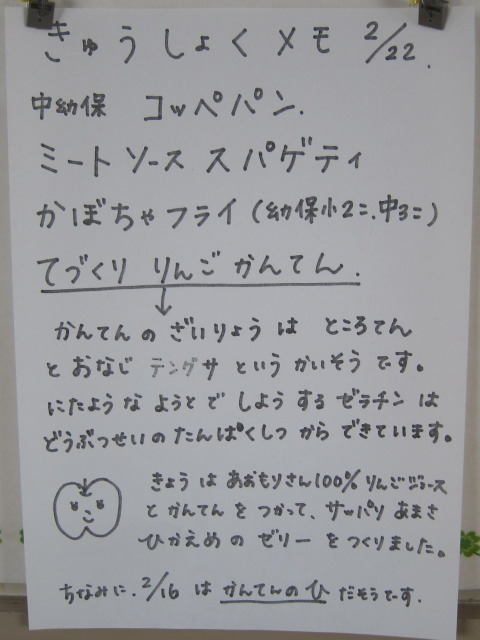 きゅうしょくメモ 2/22.
中幼保 コッペパン.
ミートソーススパゲティ
かぼちゃフライ(幼保小2コ.中3コ)
てづくり りんごかんてん.
かんてんのざいりょうは ところてん
とおなじ テングサ というかいそうです。
にたようなようとでしようするゼラチンは
どうぶつせいのたんぱくしつからできています。
きょうはあおもりさん100%りんごジュース
とかんてんをつかって、サッパリあまさ
ひかえめのゼリーをつくりました。
ちなみに.2/16はかんてんのひだそうです.